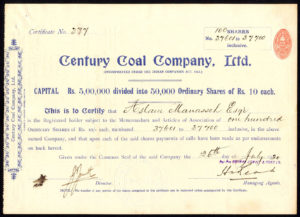 Certificate No. 377
100 SHARES
No. 37601 to 37700
inclusive.
Century Coal Company, Ltd.
(INCORPORATED UNDER THE INDIAN COMPANIES ACT, 1913.)
CAPITAL Rs. 5,00,000 divided into 50,000 Ordinary Shares of Rs. 10 each.
This is to Certify that Manasseh Esqr
is the Registered holder subject to the Memorandum and Articles of Association of one hundred
ORDINARY SHARES of Rs. 10/- each, numbered 37601 to 37700 inclusive, in the above
named Company, and that upon each of the said shares payments of calls have been made as per endorsements
on back hereof.
Given under the Common Seal of the said Company the 28th day of July
Director.
Managing Agents.